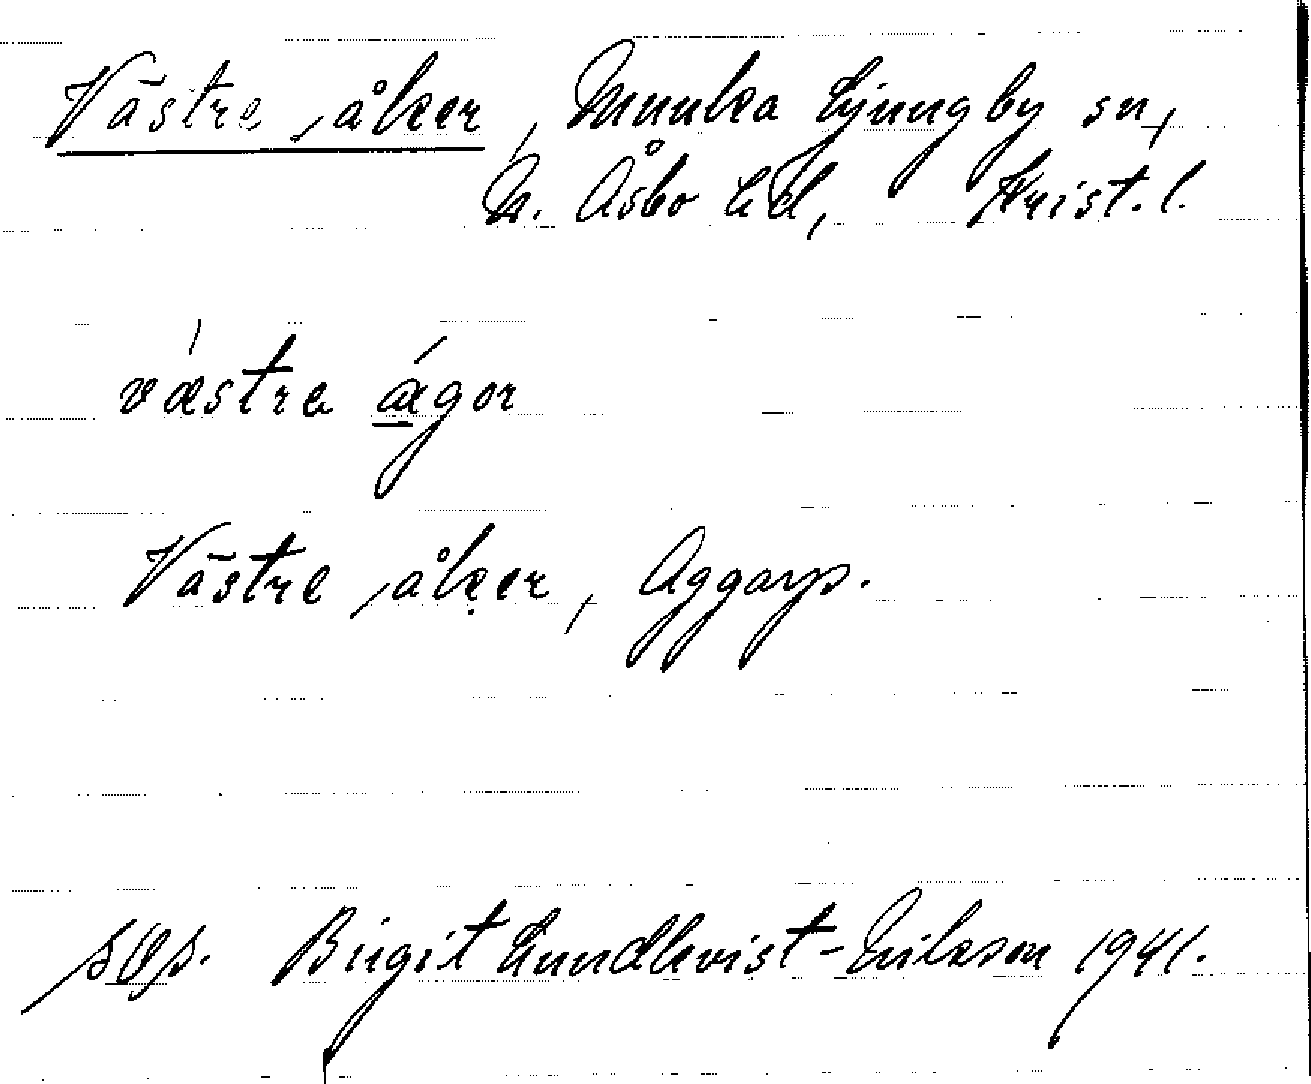 Västre åker, Munka Ljungby sn,
N. Åsbo hd, Krist. l.
væstre ægor
Västre åker, Aggarp.
Birgit Lundkvist-Erikson 1941.